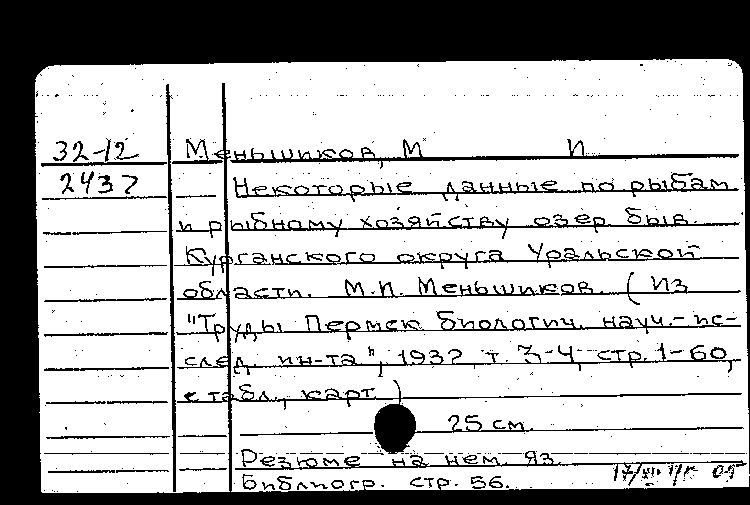 32-12 Меньшиков, М И
2437 Некоторые данные по рыбам
и рыбному хозяйству озер быв.
Курганского округа Уральской
области. М.И. Меньшиков. (Из
"Труды Пермск биологич. науч.-ис-
след. ин-та", 1932 т. 3-4, стр. 1-60,
с табл., карт.)
25 см.
Резюме на нем. яз.
Библиогр. стр. 56.